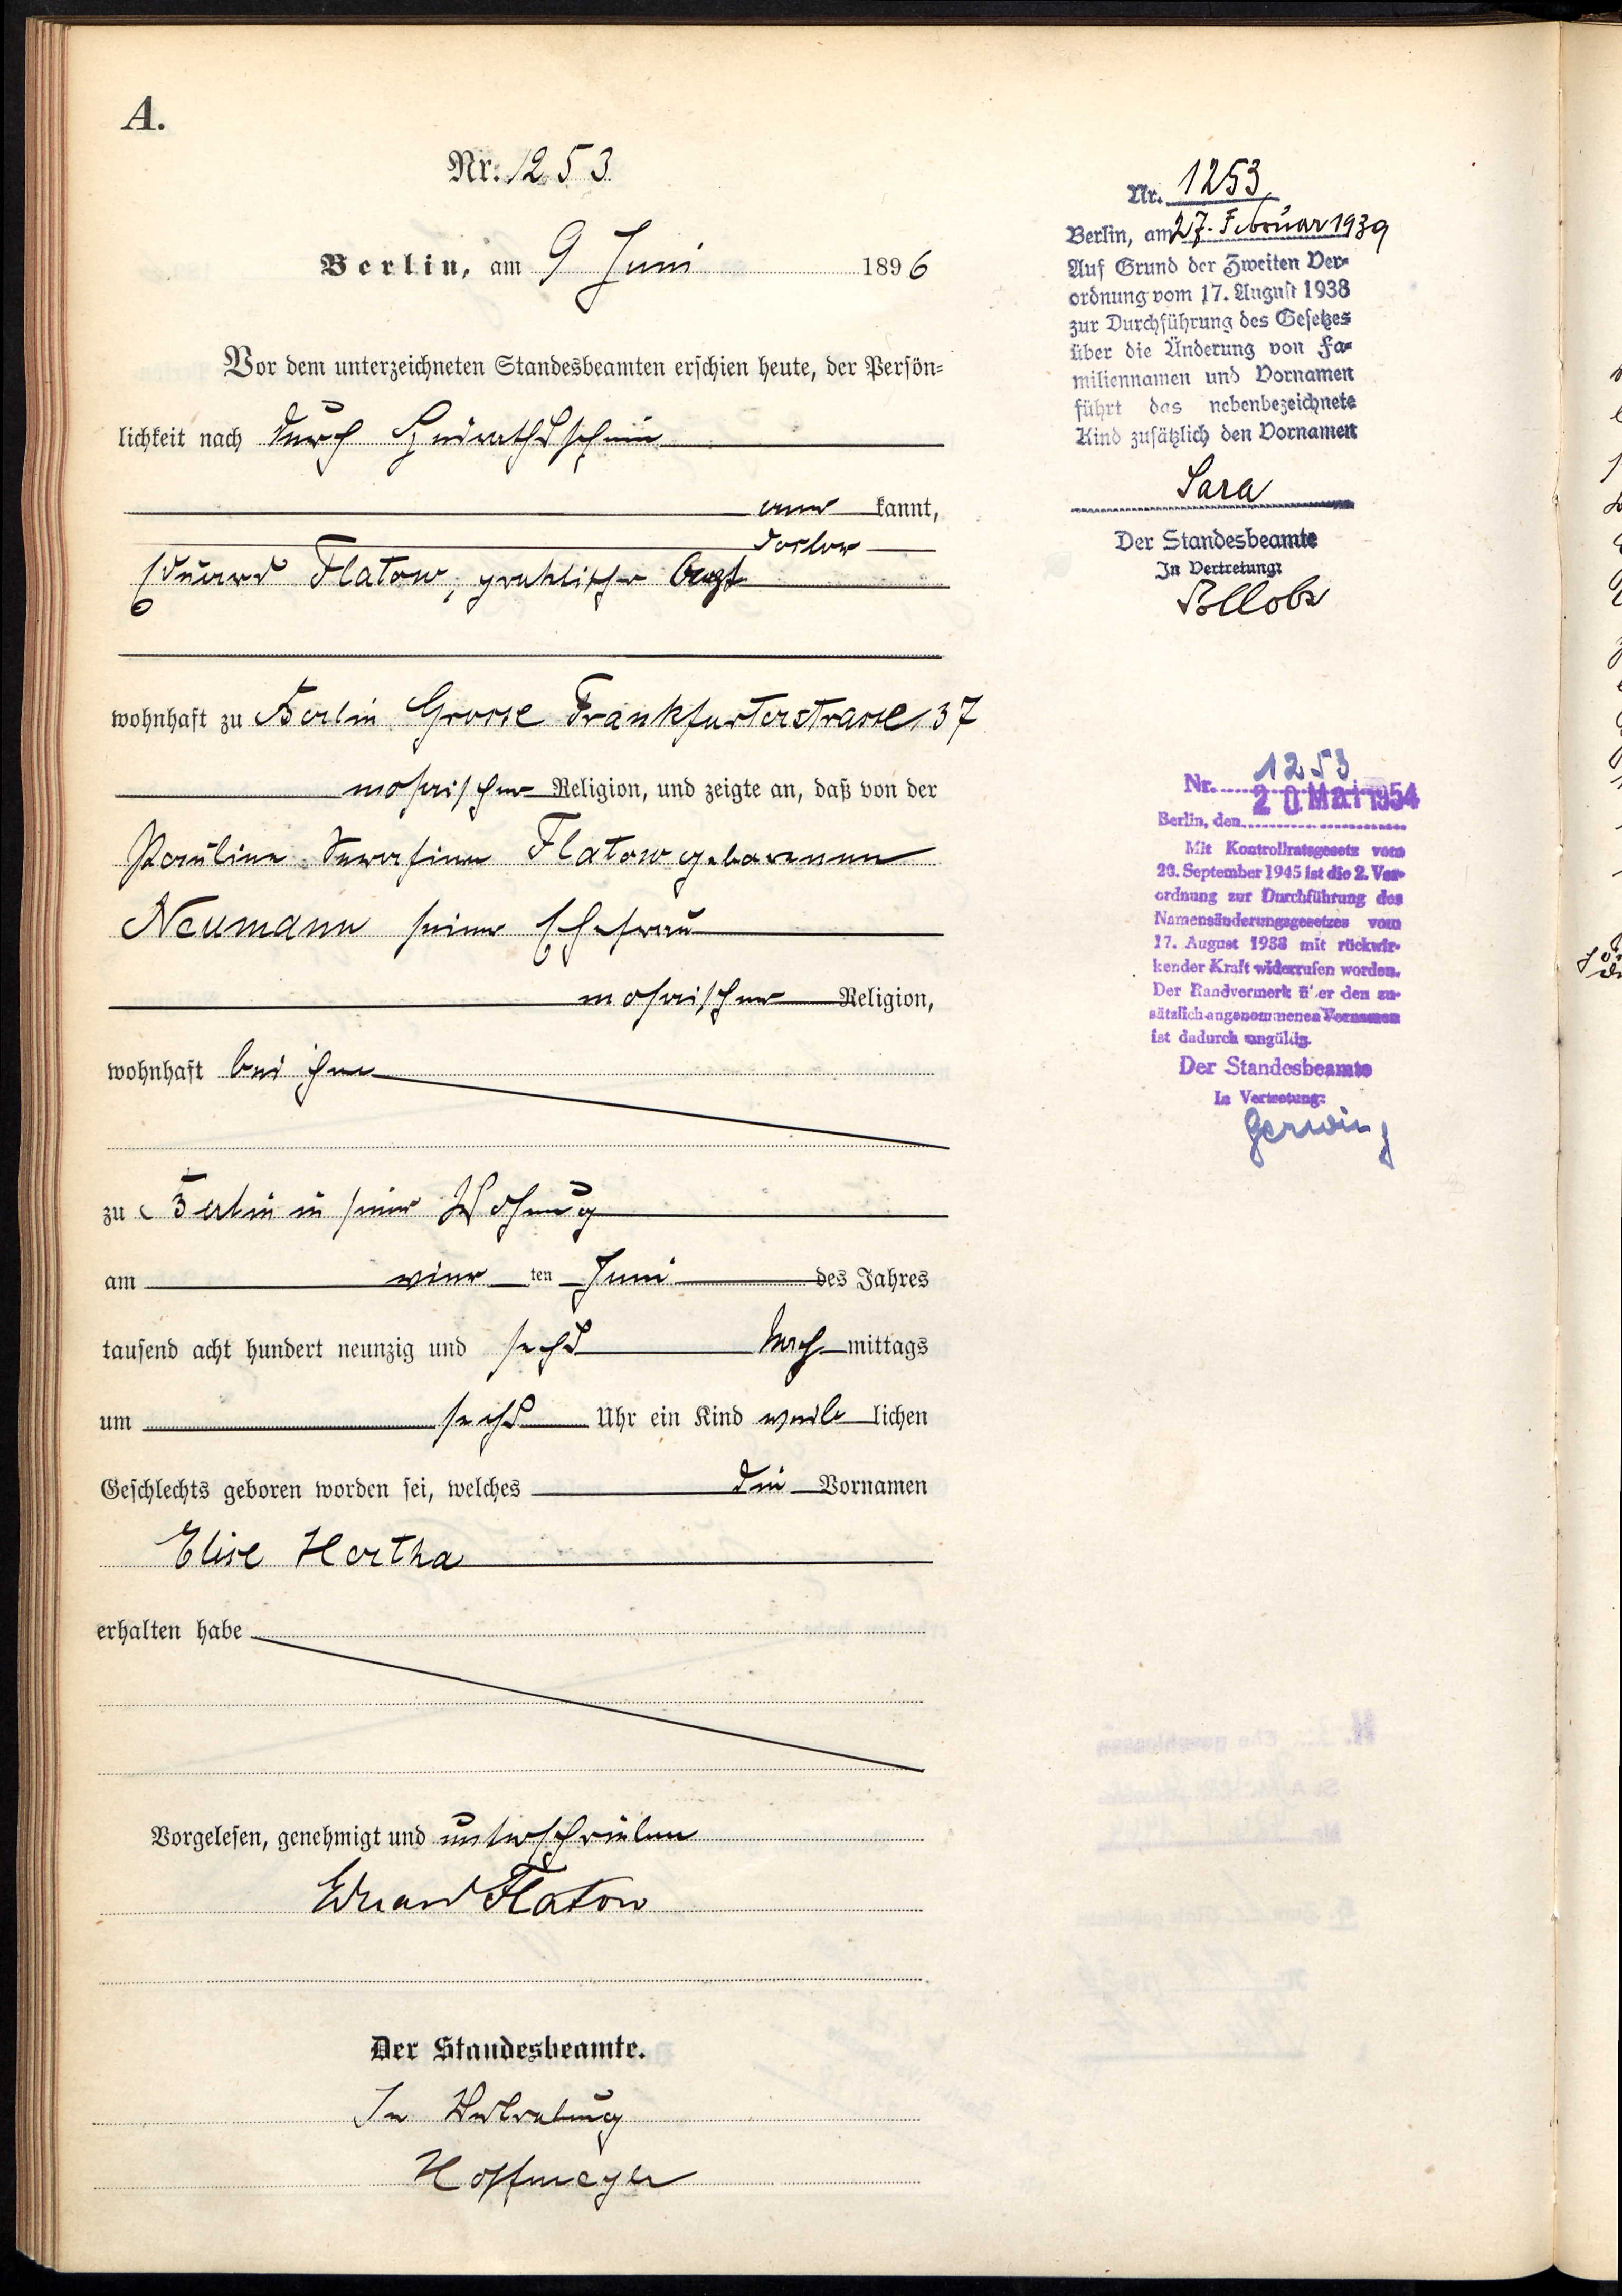 A.
Nr. 1253
Berlin, am 9 Juni 1896
Vor dem unterzeichneten Standesbeamten erschien heute, der Persön-
lichkeit nach durch Heirathsschein
aner kannt,
Doctor
Eduard Flatow, praktischer Arzt
wohnhaft zu Berlin Grosse Frankfurterstrasse 137
mosaischer Religion, und zeigte an, daß von der
Pauline Serafine Flatow geborenen
Neumann seiner Ehefrau
mosaischer Religion,
wohnhaft bei ihm
zu Berlin in seiner Wohnung
am vier ten Juni des Jahres
tausend acht hundert neunzig und sechs Nach mittags
um sechs Uhr ein Kind weib lichen
Geschlechts geboren worden sei, welches die Vornamen
Elise Hertha
erhalten habe
Vorgelesen, genehmigt und unterschrieben
Eduard Flatow
Der Standesbeamte.
In Vertretung
Hoffmeyer
Nr. 1253
Berlin, am 27. Februar 1939
Auf Grund der Zweiten Ver-
ordnung vom 17. August 1938
zur Durchführung des Gesetzes
über die Änderung von Fa-
miliennamen und Vornamen
führt das nebenbezeichnete
Kind zusätzlich den Vornamen
Sara
Der Standesbeamte
In Vertretung:
Nr. 1253
Berlin, den 20 Mai 1954
Mit Kontrollratsgesetz vom
20. September 1945 ist die 2. Ver-
ordnung zur Durchführung des
Namensänderungsgesetzes vom
17. August 1938 mit rückwir-
kender Kraft widerrufen worden.
Der Randvermerk über den zu-
sätzlich angenommenen Vornamen
ist dadurch ungültig.
Der Standesbeamte
In Vertretung:
Gerwing